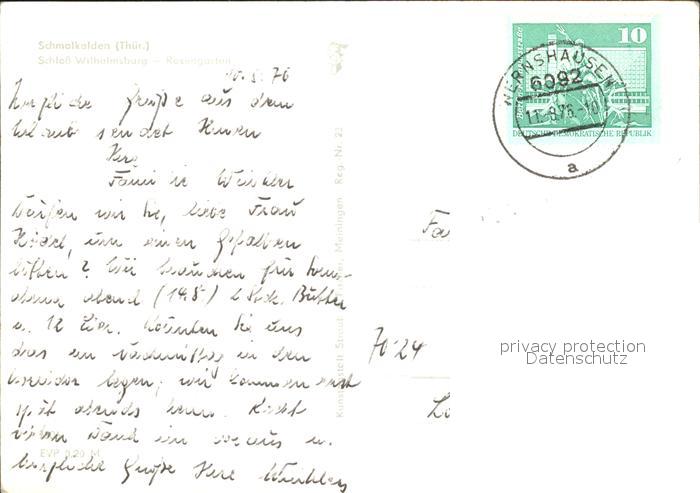 Schmalkalden (Thür.)
Schloß Wilhelmsburg – Rosengarten
10.8.76
Herzliche Grüße aus dem
Urlaub sendet Ihnen
Ihre
Familie Winkler
Dürfen wir Sie, liebe Frau
um einen Gefallen
bitten? Wir brauchen für Sonn-
abend abend (14.8.) 2 Stck. Butter
u. 12 Eier. Könnten Sie uns
das am Nachmittag in den
legen; wir kommen erst
spät abends heim. Recht
vielen Dank im voraus u.
herzliche Grüße Ihre Winklers
EVP 0,20 M
Meiningen Reg.-Nr. 23
10
DEUTSCHE DEMOKRATISCHE REPUBLIK
WERNSHAUSEN
6092
11.-8.76.-10
a
Fa
7024
privacy protection
Datenschutz